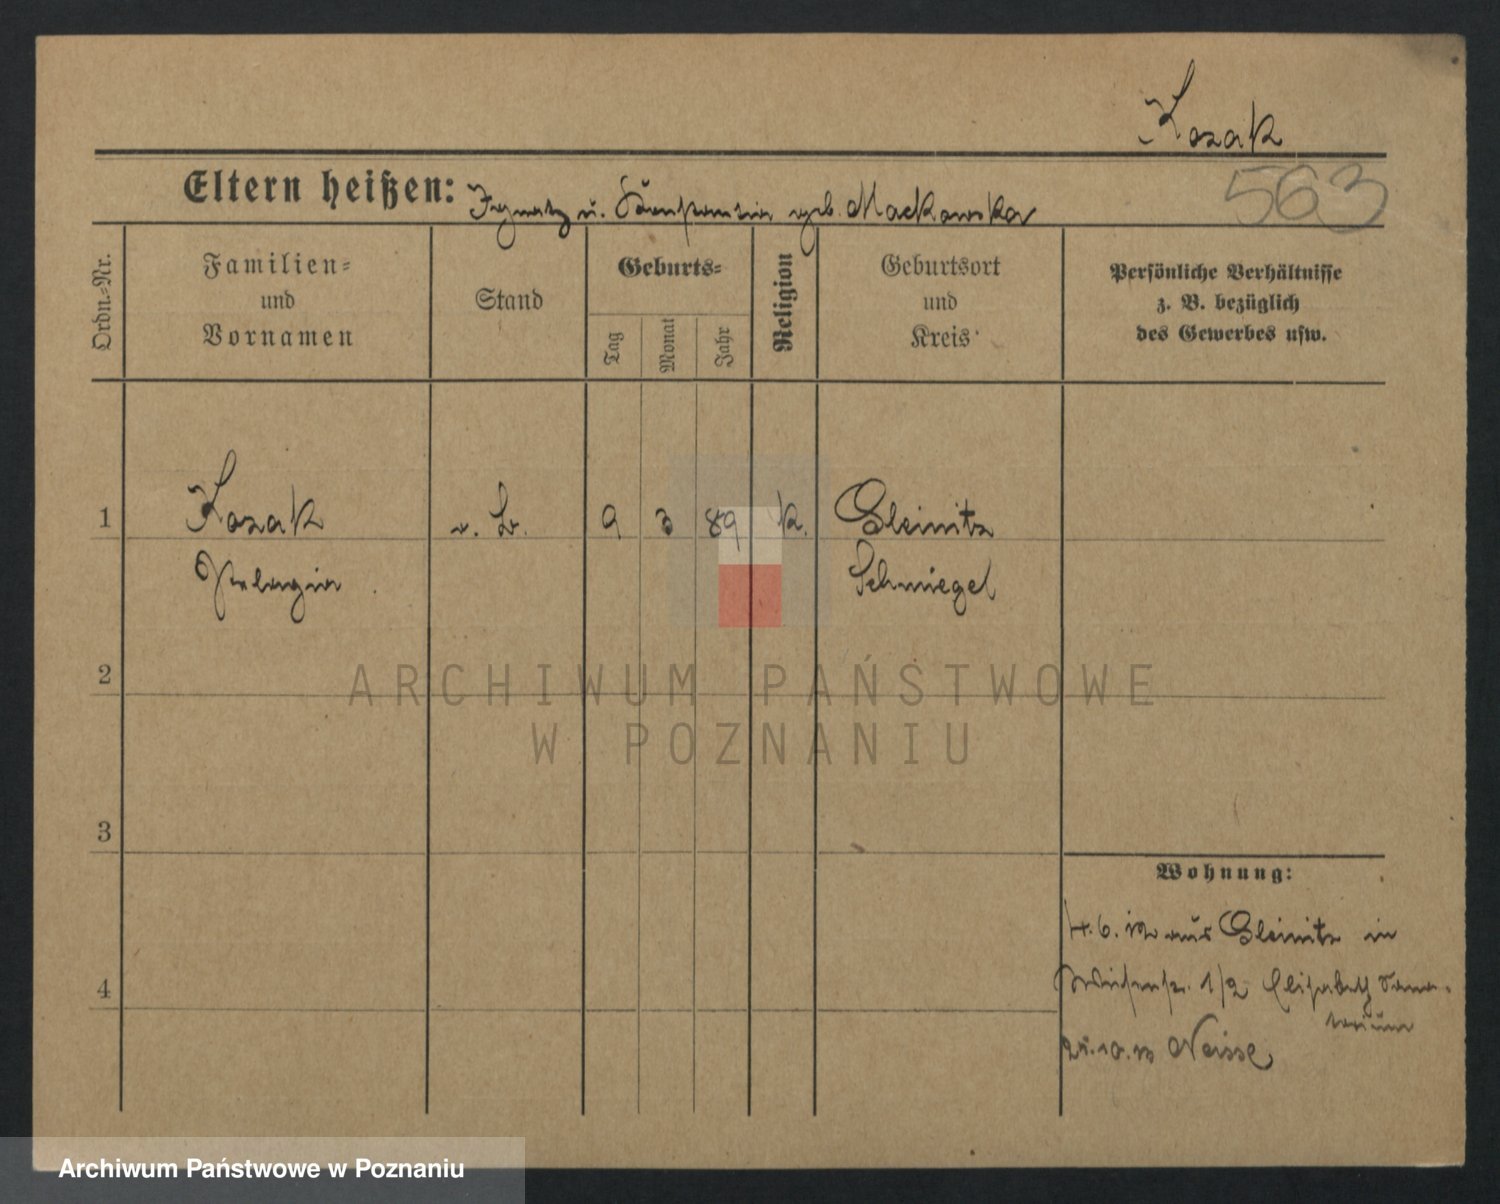 Kozak
Eltern heißen: Ignatz u. geb. Mackowska
563
Ordn.-Nr.
Familien-
und
Vornamen
Stand
Geburts-
Tag
Monat
Jahr
Religion
Geburtsort
und
Kreis
Persönliche Verhältnisse
z. B. bezüglich
des Gewerbes usw.
1
Kozak
9 3 89 k. Gleinitz
Pelagia
Schmiegel
2
ARCHIWUM PAŃSTWOWE
W POZNANIU
3
Wohnung:
4.6.12 aus Gleinitz in
1/2 Elisabeth Sana-
torium
4
10.13 Neisse
Archiwum Państwowe w Poznaniu